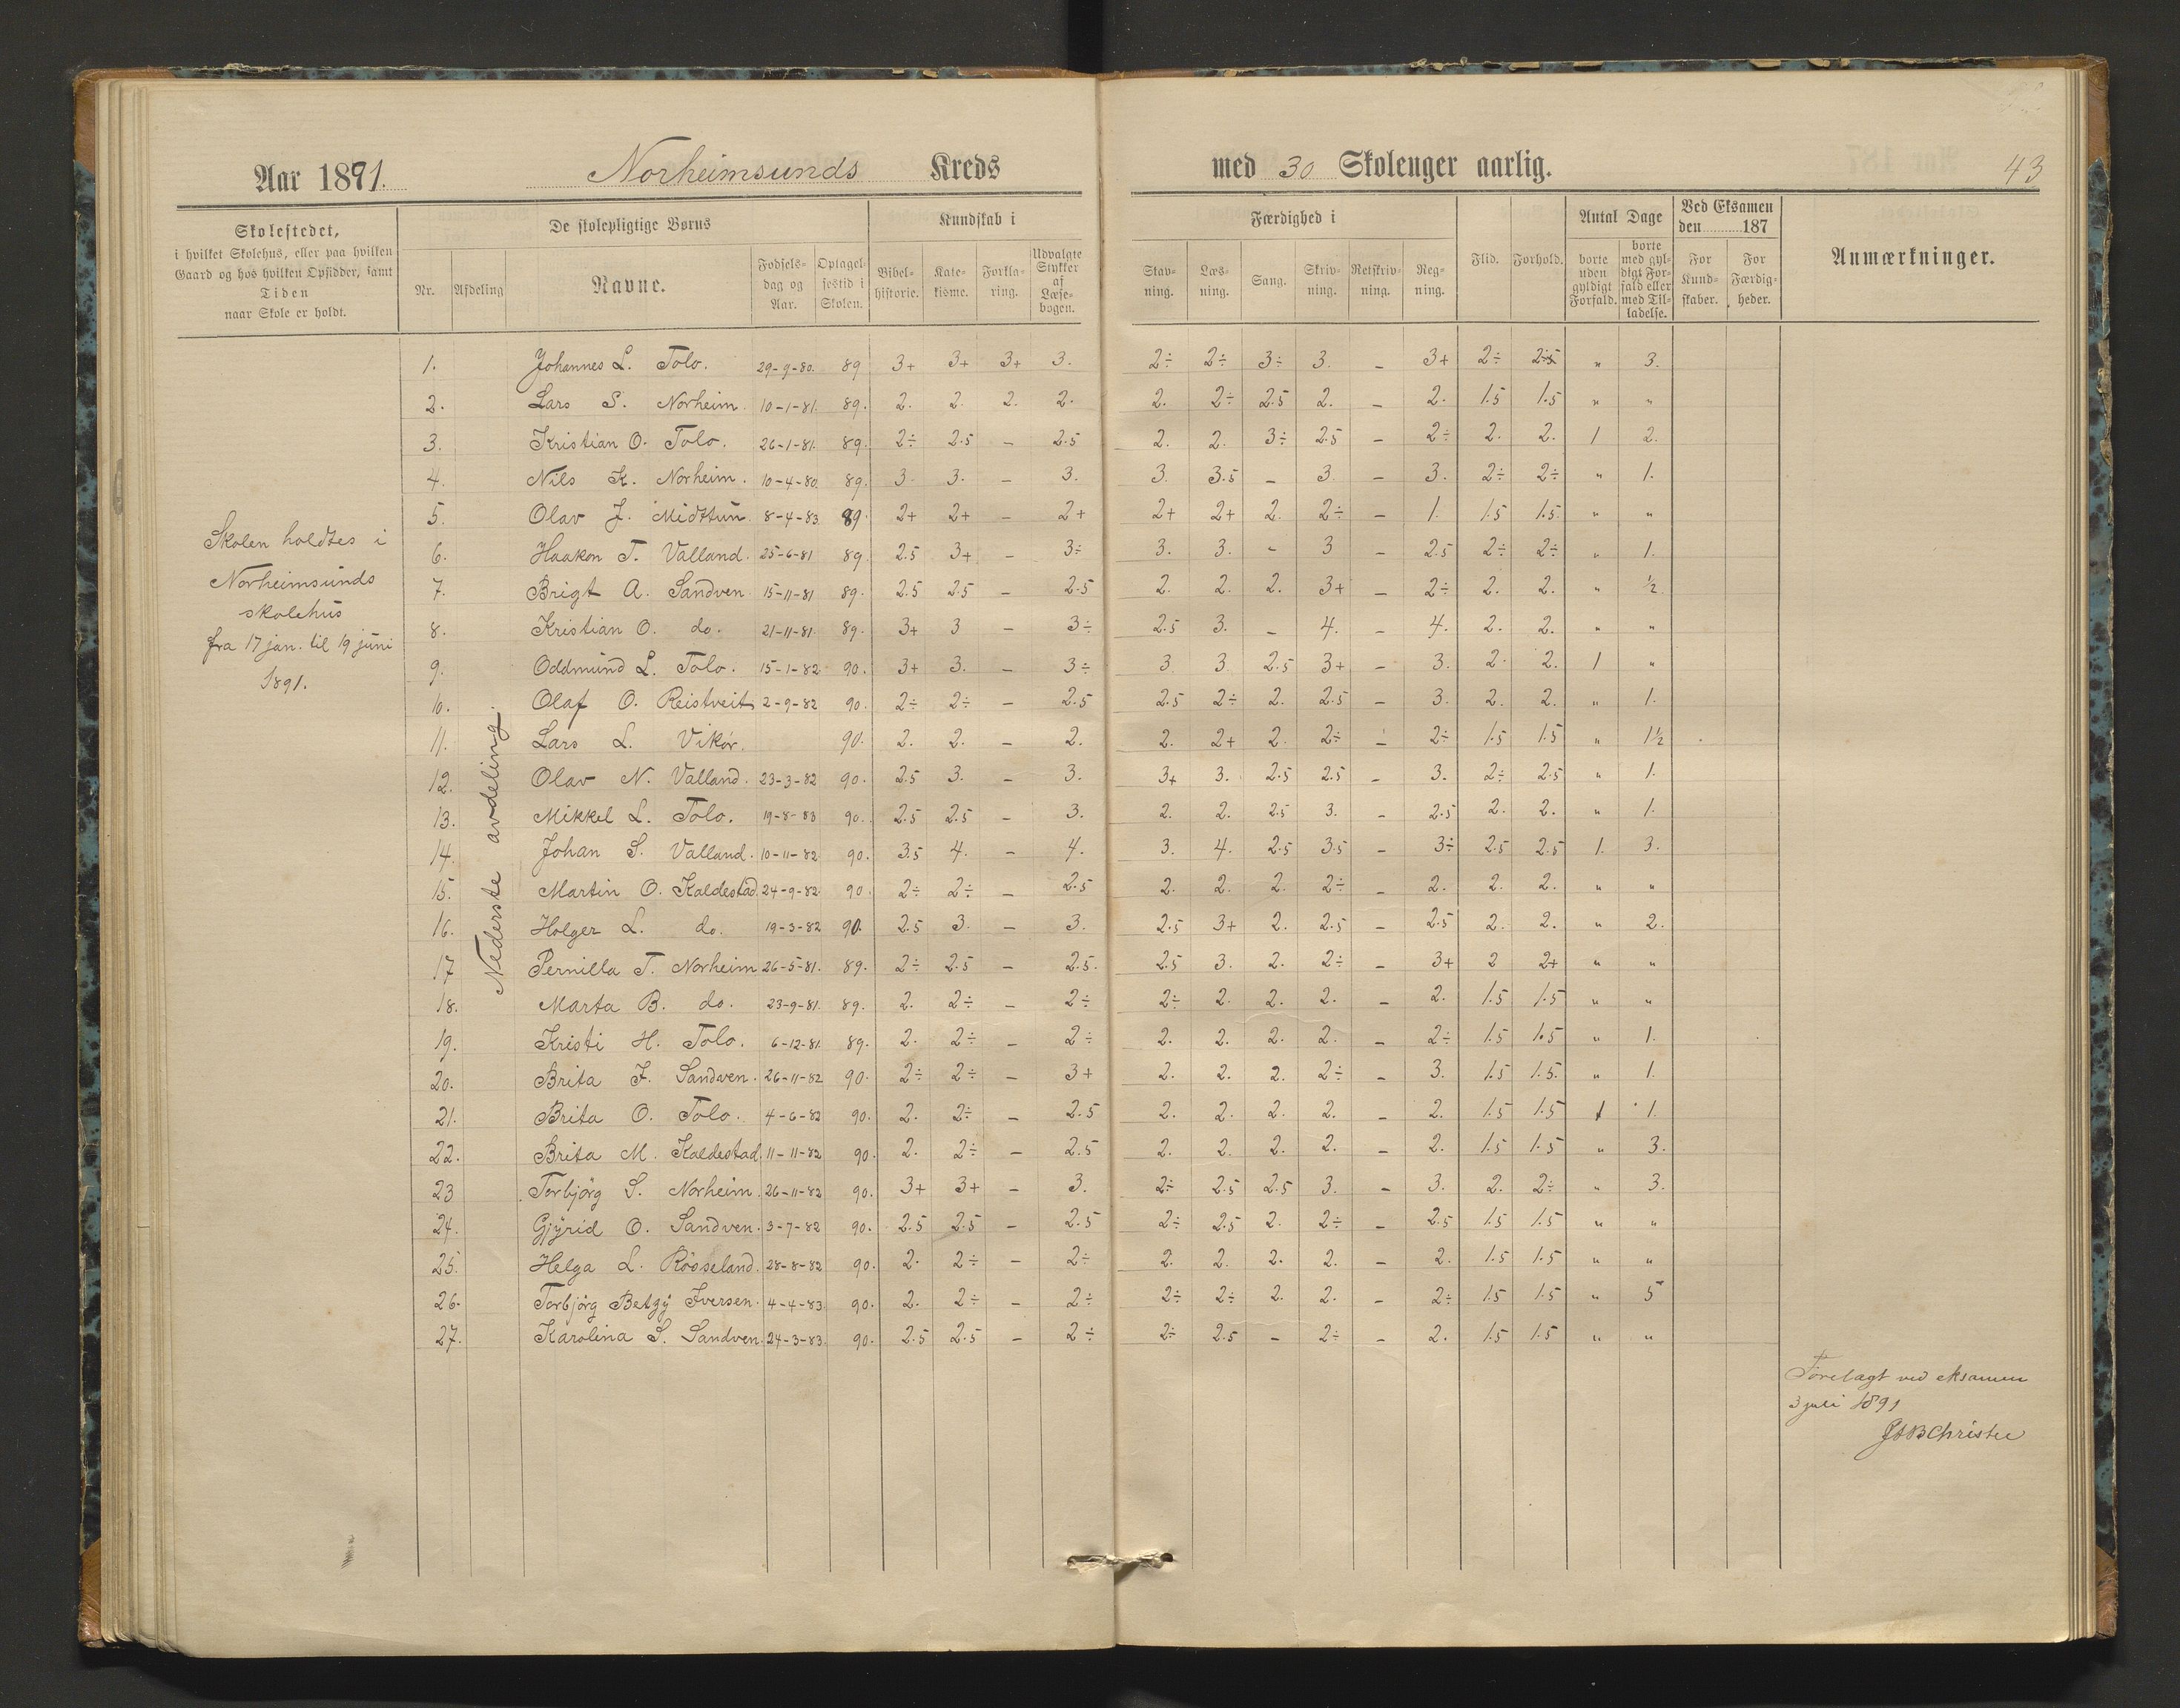 Aar 1891. Norheimsunds Kreds med 30 Skolenger aarlig. 43
Skolestedet,
i hvilket Skolehus, eller paa hvilken
Gaard og hos hvilken Opsidder, samt
Tiden
naar Skole er holdt.
De skolepligtige Børns
Nr. Afdeling Navne. Fødsels-dag og Aar. Optagel-sestid i Skolen.
Kundskab i
Bibel-historie. Kate-kisme. Forkla-ring. Udvalgte Stykker af Læse-bogen.
Færdighed i
Stav-ning. Læs-ning. Sang. Skriv-ning. Retskriv-ning. Reg-ning.
Flid. Forhold.
Antal Dage
borte uden gyldigt Forfald. borte med gyl-digt For-fald eller med Til-ladelse.
Ved Eksamen den 187
For Kund-skaber. For Færdig-heder.
Anmærkninger.
Skolen holdtes i
Norheimsunds
skolehus
fra 17 jan. til 19 juni
1891.
Nederste avdeling.
1. Johannes L. Tolo. 29-9-80. 89 3+ 3+ 3+ 3. 2÷ 2÷ 3÷ 3. - 3+ 2÷ " 3.
2. Lars S. Norheim. 10-1-81. 89. 2. 2. 2. 2. 2. 2÷ 2.5 2. - 2. 1.5 1.5 " "
3. Kristian O. Tolo. 26-1-81. 89. 2÷ 2.5 - 2.5 2. 2. 3÷ 2.5 - 2÷ 2. 2. 1 2.
4. Nils K. Norheim. 10-4-80. 89. 3. 3. - 3. 3. 3.5 - 3. - 3. 2÷ 2÷ " 1.
5. Olav J. Midttun. 8-4-83. 89. 2+ 2+ - 2+ 2+ 2+ 2. 2÷ - 1. 1.5 1.5. " "
6. Haakon T. Valland. 25-6-81 89. 2.5 3+ - 3÷ 3. 3. - 3 - 2.5 2÷ 2÷ " 1.
7. Brigt A. Sandven. 15-11-81 89. 2.5 2.5 - 2.5 2. 2. 2. 3+ - 2÷ 2. 2. " ½.
8. Kristian O. do. 21-11-81. 89. 3+ 3 - 3÷ 2.5 3. - 4. - 4. 2. 2. " "
9. Oddmund L. Tolo. 15-1-82. 90. 3+ 3. - 3÷ 3 3. 2.5 3+ - 3. 2. 2. 1 "
10. Olaf O. Reistveit 2-9-82 90. 2÷ 2÷ - 2.5 2.5 2÷ 2. 2.5 - 3. 2. 2. " 1.
11. Lars L. Vikór. 90. 2. 2. - 2. 2. 2+ 2. 2÷ - 2÷ 1.5 1.5 " 1½
12. Olav N. Valland. 23-3-82 90. 2.5 3. - 3. 3+ 3. 2.5 2.5 - 3. 2÷ 2.5 " 1.
13. Mikkel L. Tolo. 19-8-83 90. 2.5 2.5 - 3. 2. 2. 2.5 3. - 2.5 2. 2. " 1.
14. Johan S. Valland. 10-11-82. 90. 3.5 4. - 4. 3. 4. 2.5 3.5 - 3÷ 2.5 2.5 1. 3.
15. Martin O. Kaldestad. 24-9-82. 90. 2÷ 2÷ - 2.5 2. 2. 2. 2÷ - 2. 2. 2. " "
16. Holger L. do. 19-3-82 90. 2.5 3. - 3. 2.5 3+ 2. 2.5 - 2.5 2. 2. " 2.
17 Pernilla T. Norheim 26-5-81. 89. 2÷ 2.5 - 2.5. 2.5 3. 2. 2÷ - 3+ 2 2+ " "
18. Marta B. do. 23-9-81. 89. 2. 2÷ - 2÷ 2÷ 2. 2. 2. - 2. 1.5 1.5 " "
19. Kristi H. Tolo. 6-12-81. 89. 2. 2÷ - 2÷ 2. 2. 2. 2. - 2÷ 1.5 1.5 " 1.
20. Brita J. Sandven. 26-11-82 90. 2÷ 2÷ - 3+ 2. 2. 2. 2÷ - 3. 1.5 1.5. " 1.
21. Brita O. Tolo. 4-6-82 90. 2. 2÷ - 2.5 2. 2. 2. 2. - 2. 1.5 1.5 1 1.
22. Brita M. Kaldestad. 11-11-82 90. 2. 2÷ - 2.5 2. 2. 2. 2. - 2. 1.5 1.5 " 3.
23 Torbjörg S. Norheim. 26-11-82 90. 3+ 3+ - 3. 2÷ 2.5 2.5 3. - 3. 2. 2÷ " 3.
24. Gjÿrid O. Sandven. 3-7-82 90. 2.5 2.5 - 2.5 2÷ 2.5 2. 2÷ - 2.5 1.5 1.5 " "
25. Helga L. Rósseland. 28-8-82 90. 2. 2÷ - 2÷ 2. 2. 2. 2. - 2. 1.5 1.5 " "
26. Torbjörg Betzÿ Iversen. 4-4-83. 90. 2. 2÷ - 2÷ 2÷ 2÷ 2. 2. - 2÷ 1.5 1.5 " 5
27. Karolina S. Sandven. 24-3-83. 90. 2.5 2.5 - 2÷ 2÷ 2.5 - 2÷ - 2. 1.5 1.5 " "
Forelagt ved eksamen
3 juli 1891
Christie